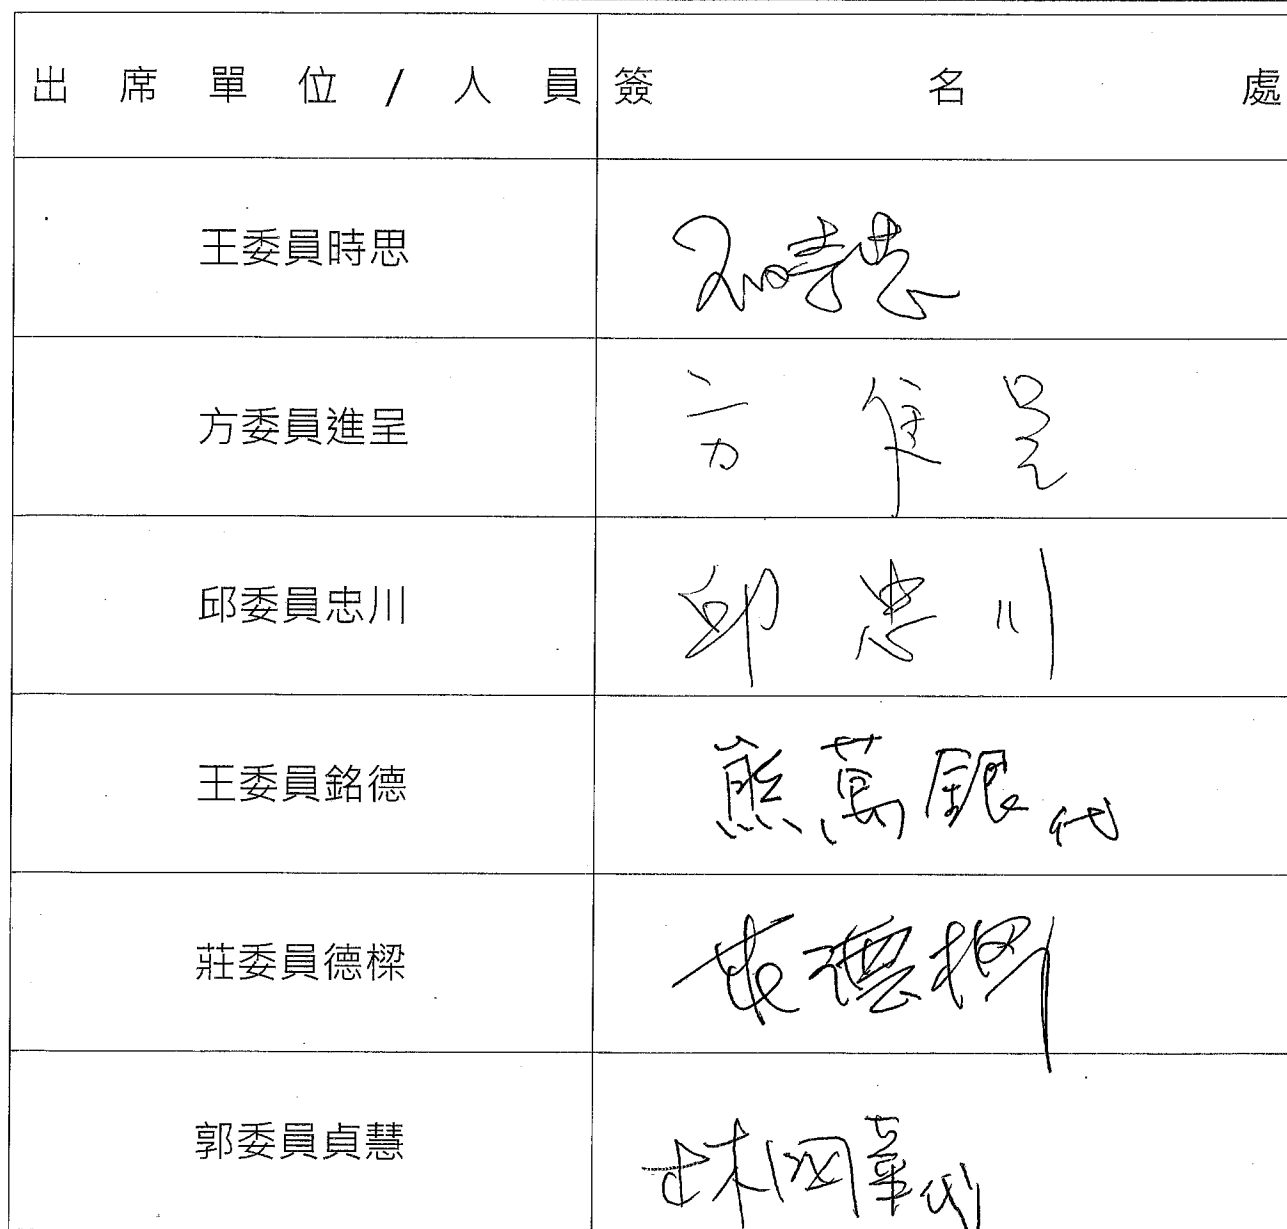 出席單位/人員 簽名處
王委員時思 王時思
方委員進呈 方進呈
邱委員忠川 邱忠川
王委員銘德 熊萬銀代
莊委員德樑 莊德樑
郭委員貞慧 代